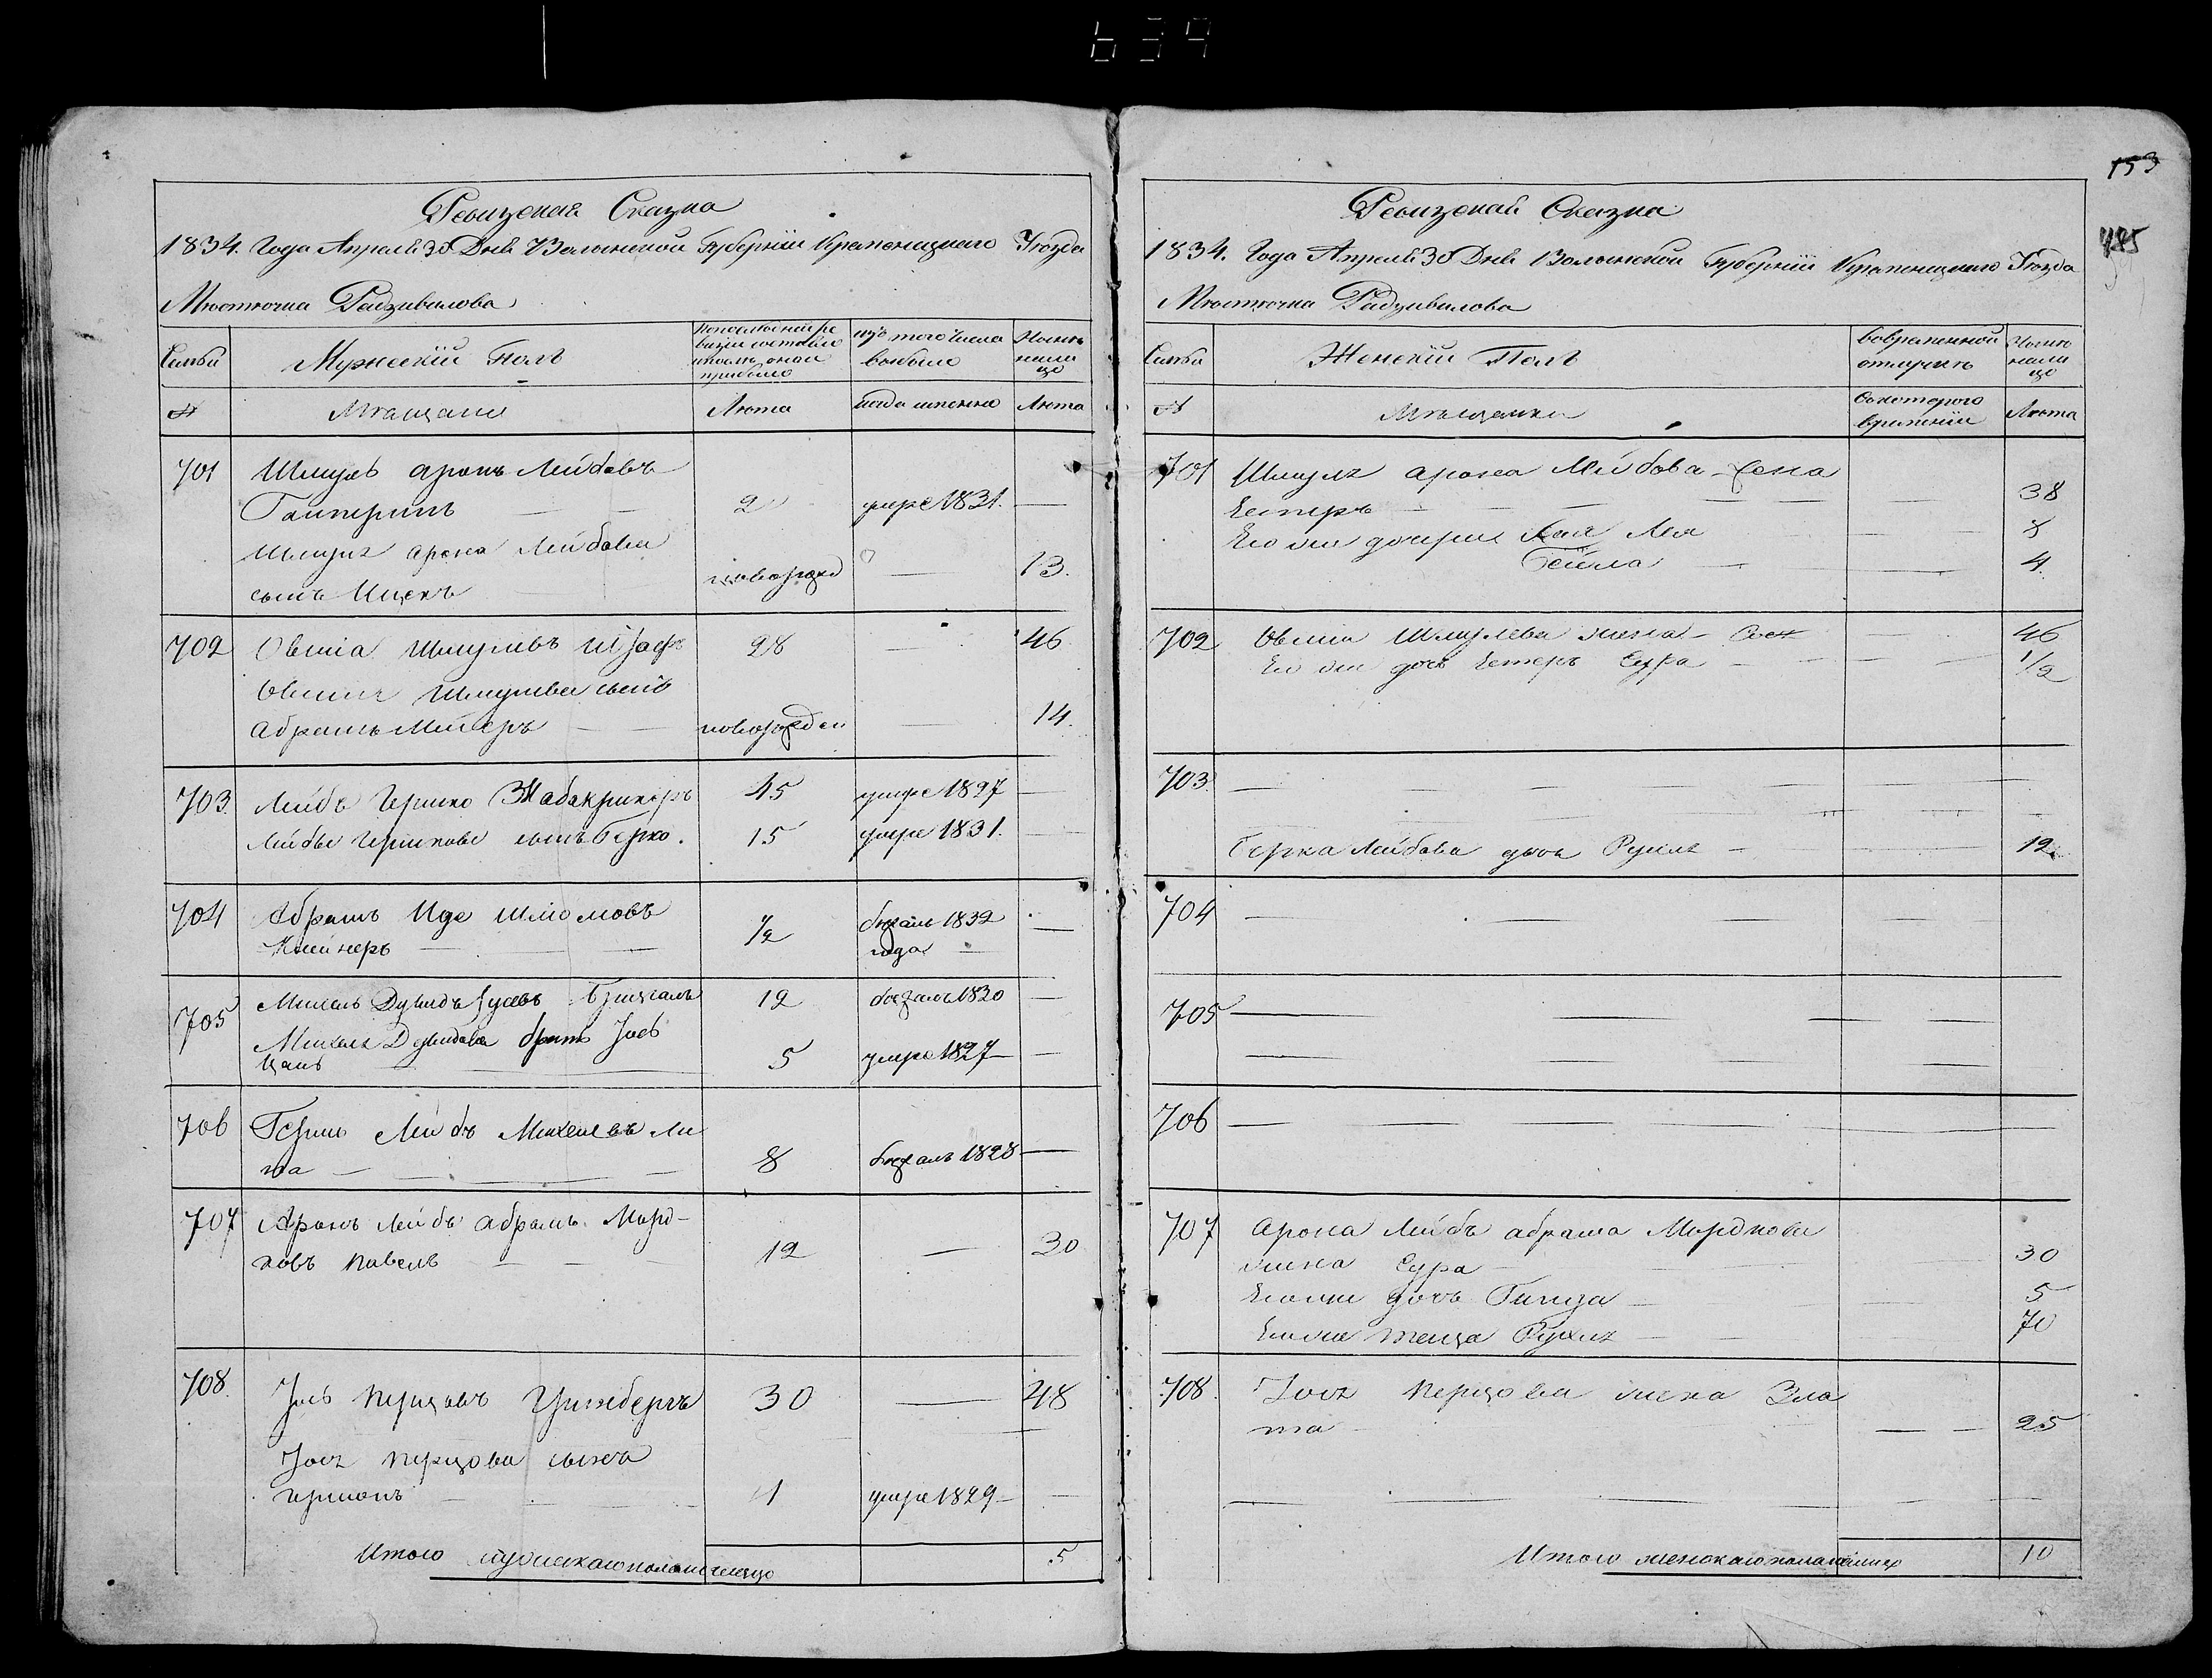 639
153
485
Ревизская Сказка
1834. Года Апреля 30 Дня Волынской Губернии Кременецкого Уезда
Местечка Радзивилова
Семьи
Мужеский Полъ
изъ того числа
выбыло
Ныне
нали
цо
№
Мещане
Лета
когда именно
Лета
701 Шмуль Аронъ Лейбовъ
Гальперинъ — 2 умре 1831. —
Шмуля Арона Лейбова
сынъ Ицекъ новорожд — 13.
702 Овшіа Шмулевъ 28 — 46
Овшия Шмулева сынъ
Абрамъ Мейеръ — новорожден — 14.
703. Лейбъ Гершко 45 умре 1827 —
Лейбы Гершкова сынъ Берко. 15 умре 1831. —
704 Абрамъ Иде Шліомовъ
1/2 бежалъ 1832 —
года
705 Михель Дувидъ 12 бежалъ 1830 —
Михеля Дувидова братъ Іось
5 умре 1827 —
706 Гершъ Лейбъ Михелевъ Ли
па — 8 бежалъ 1828 —
707 Аронъ Лейбъ Абрамъ Морд-
ковъ Павель 12 — 30
708. Іось Перцовъ Гринбергъ 30 — 48
Іося Перцова сынъ
Гершонъ — 4 умре 1829 —
Итого мужеска пола налицо 5
Ревизская Сказка
1834. Года Апреля 30 Дня Волынской Губернии Кременецкого Уезда
Местечка Радзивилова
Семьи
Женский Полъ
Вовременной
отлучке
Ныне
нали
цо
№
Мещанки
Скоторого
времении
Лета
701 Шмуля Арона Лейбова жена
Естеръ — 38
Его же дочери Хая Лея — 8
Бейла — 4.
702 Овшии Шмулева жена — 46
Его же дочь Естеръ Сура — 1/2
703. —
Берка Лейбова дочь Рухля — 12
704 —
705 —
706 —
707 Арона Лейбъ Абрама Мордкова
жена Сура — 30
Его же дочь — 5
Его же теща Рухля — 70
708. Іося Перцова жена Зла
та — 25
Итого женскаго пола налицо 10